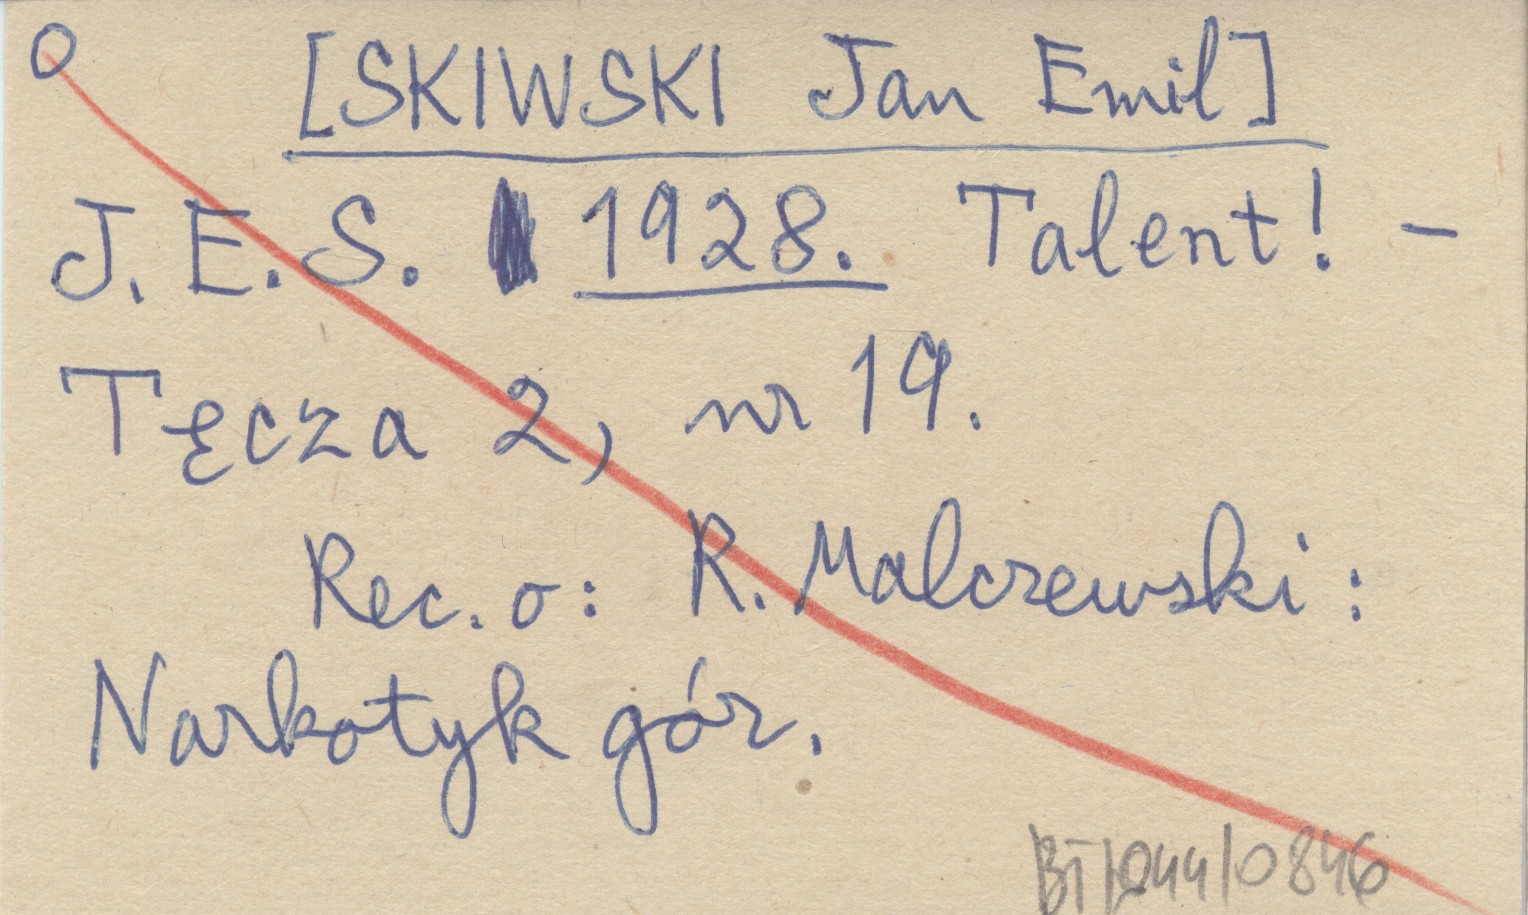 O
[SKIWSKI Jan Emil]
J. E. S. 1928. Talent! -
Tęcza 2, nr 19.
Rec. o: R. Malczewski:
Narkotyk gór.
BI/044/0846